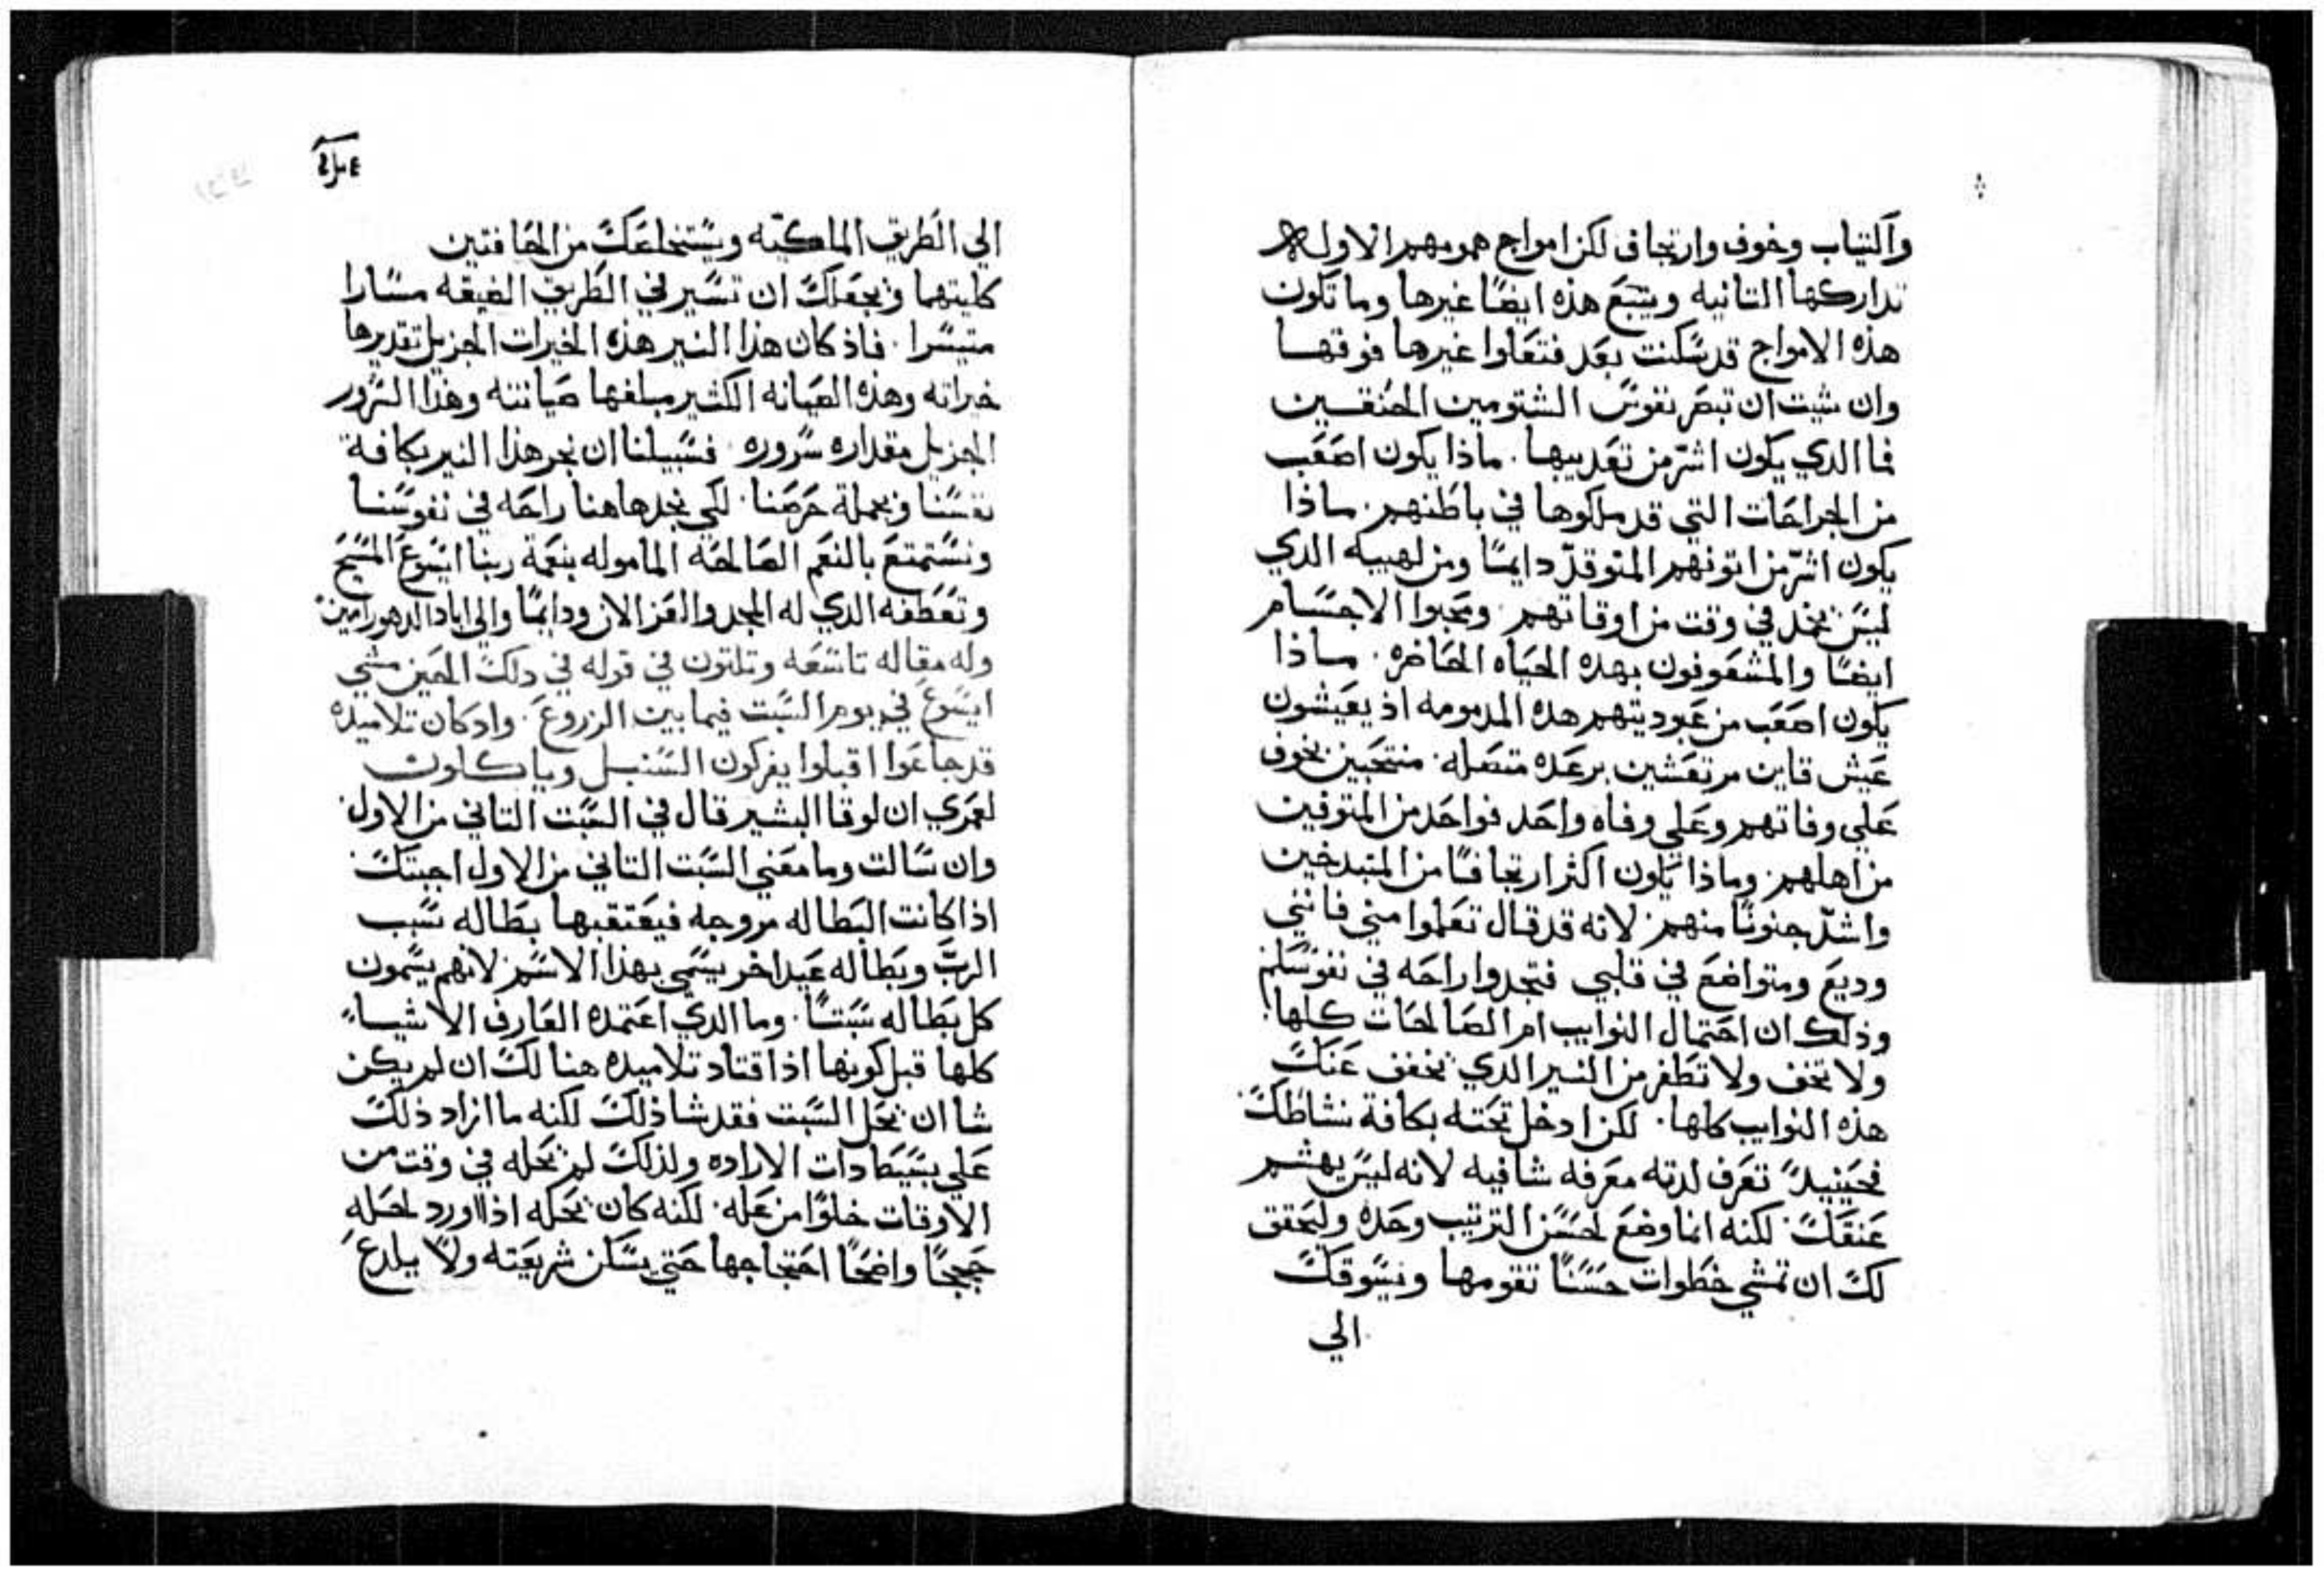 والتياب وخوف وارتجاف لكن امواج همومهم الاوله
تداركها التانيه ويتبع هذه ايضًا غيرها وما تكون
هذه الامواج قد سكنت بعد فتعلوا غيرها فوقها
وان شيت ان تبصر نفوس الشتومين الحنقين
فما الدي يكون اشرّ من تعديبها. ماذا يكون اصعب
من الجراحات التي قد ملكوها في باطنهم. ماذا
يكون اشرّ من اتونهم المتوقدّ دايمًا ومن لهيبه الدي
ليس يخمد في وقت من اوقاتهم. ومحبوا الاجسام
ايضًا والمشغوفون بهده الحياه الحاضره. ماذا
يكون اصعب من عبوديتهم هده المدمومه اذ يعيشون
عيش قاين مرتعشين برعده متصله. منتحبين بخوف
علي وفاتهم وعلي وفاه واحد فواحد من المتوفين
من اهلهم. وماذا يكون اكثر ارتجافًا من المتبدخين
واشدّ جنونًا منهم. لانه قد قال تعلموا مني فانني
وديع ومتواضع في قلبي فتجدوا راحه في نفوسكم
وذلك ان احتمال النوايب ام الصالحات كلها.
ولا تخف ولا تطفر من النير الدي يخفف عنك
هذه النوايب كلها. لكن ادخل تحته بكافة نشاطك
فحينيدً تعرف لدته معرفه شافيه لانه ليس يهشم
عنقك. لكنه انما وضع لحسن الترتيب وحده وليحقق
لك ان تمشي خطوات حسنًا تقومها ونسوقك
الي
الي الطريق الملكيه ويستخلصك من الحافتين
كليتهما ويجعلك ان تسير في الطريق الضيقه مسارا
متيسرا. فاذ كان هذا النير هذه الخيرات الجزيل تقديرها
خيراته وهذه الصيانه الكثير مبلغها صيانته وهذا السرور
الجزيل مقداره سروره. فسبيلنا ان نجر هذا النير بكافة
نفسنا وبجملة حرصنا. لكي نجد هاهنا راحه في نفوسنا
ونستمتع بالنعم الصالحه الماموله بنعمة ربنا ايسوع المسيح
وتعطفه الدي له المجد والعز الان ودايمًا والي اباد الدهور امين
وله مقاله تاسعه وتلتون في قوله في دلك الحين مشي
ايسوع في يوم السبت فيما بين الزروع. واد كان تلاميده
قد جاعوا اقبلوا يفركون السنبل وياكلون
لعمري ان لوقا البشير قال في السبت التاني من الاول
وان سالت وما معني السبت التاني من الاول اجبتك
اذا كانت البطاله مزوجه فيعتقبها بطاله سبب
الربّ وبطاله عيد اخر يسمي بهذا الاسم. لانهم يسمون
كل بطاله سبتًا. وما الدي اعتمده العارف الاشياء
كلها قبل كونها اذ اقتاد تلاميده هنالك ان لم يكن
شا ان يحل السبت فقد شا ذلك لكنه ما اراد ذلك
علي بسيطا دات الاراده ولذلك لم يحله في وقت من
الاوقات خلوًا من عله. لكنه كان يحله اذا اورد لحله
حججًا واضحًا احتجاجها حتي يسكن شريعته ولا يلدع